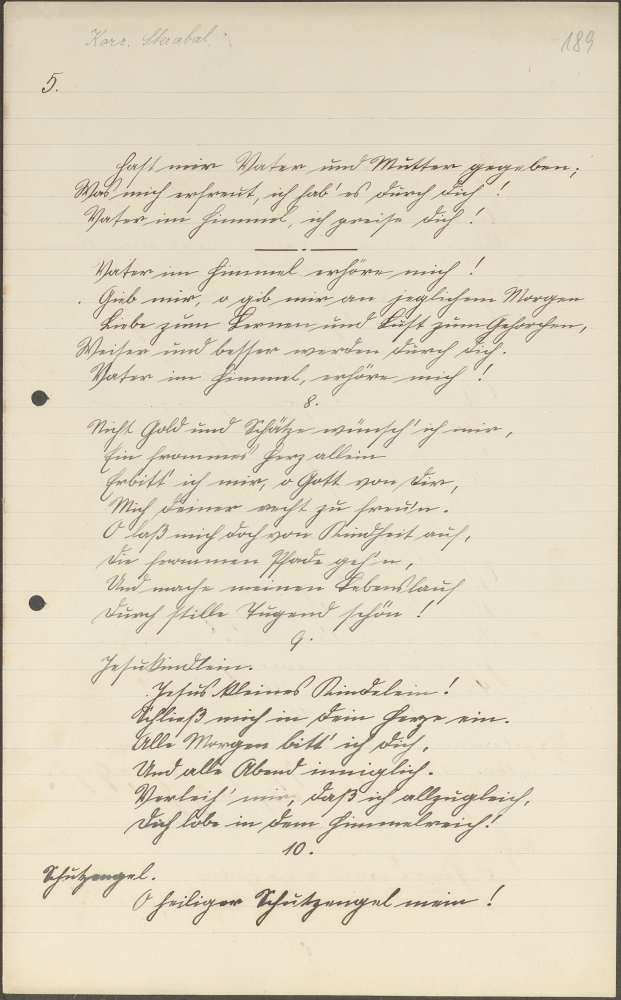 Korr. Strobal.
189
5.
hast mir Vater und Mutter gegeben;
Was mich erfreut, ich hab' es durch dich!
Vater im Himmel, ich preise dich!
Vater im Himmel erhöre mich!
Gieb mir, o gib mir an jeglichem Morgen
Liebe zum Lernen und Lust zum Gehorchen,
Weiser und besser werden durch dich.
Vater im Himmel, erhöre mich!
8.
Nicht Gold und Schätze wünsch' ich mir,
Ein frommes Herz allein
Erbitt' ich mir, o Gott von Dir,
Mich deiner recht zu freu'n.
O laß mich doch von Kindheit auf,
Die frommen Pfade geh'n,
Und mache meinen Lebenslauf
Durch stille Tugend schön!
9.
Jesukindlein.
Jesus kleines Kindelein!
Schließ mich in dein Herze ein.
Alle Morgen bitt' ich dich,
Und alle Abend inniglich.
Verleih' mir, daß ich allzugleich,
Dich lobe in dem Himmelreich!
10.
Schutzengel.
O heiliger Schutzengel mein!